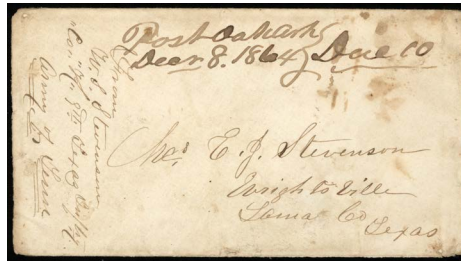 Post Oak Ark
Decr. 8. 1864 Due 10
From
W. S. Stevenson
Co. 9th Tex Cavy
Army of Tenn
Mrs E. J. Stevenson
Wrightsville
Lamar Co
Texas